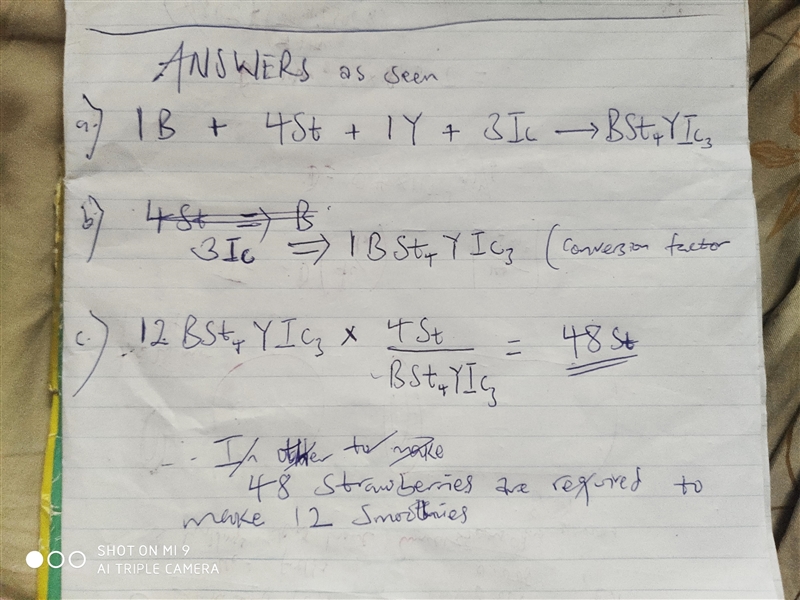 ANSWERS as seen
a.) 1B + 4St + 1Y + 3Ic → BSt₄YIc₃
b.) 4St ⇒ B
3Ic ⇒ 1BSt₄YIc₃ (Conversion factor
c.) 12 BSt₄YIc₃ × 4St / BSt₄YIc₃ = 48 St
∴ In other to make
48 Strawberries are required to
make 12 Smoothies
SHOT ON MI 9
AI TRIPLE CAMERA